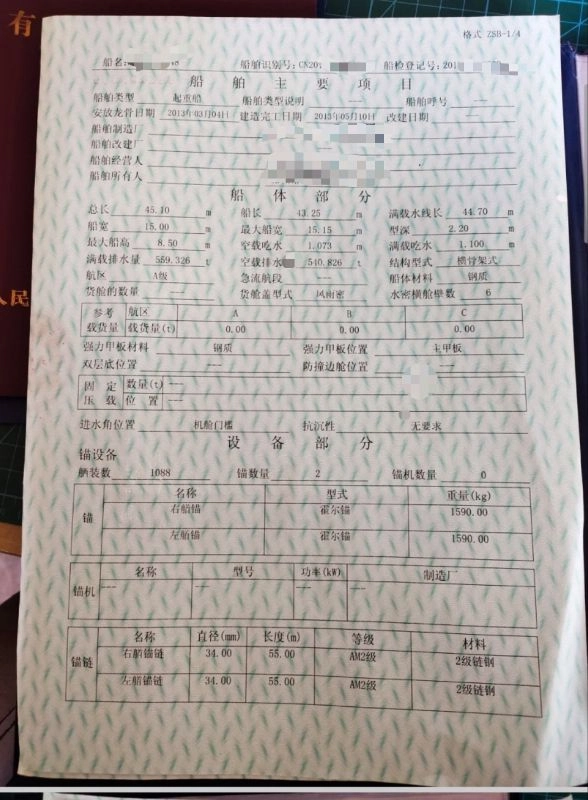 有
人民
格式 ZSB-1/4
船名: 船舶识别号: CN20 船检登记号: 201
船 舶 主 要 项 目
船舶类型 起重船 船舶类型说明 --- 船舶呼号 ---
安放龙骨日期 2013年03月04日 建造完工日期 2013年05月10日 改建日期 ---
船舶制造厂
船舶改建厂
船舶经营人
船舶所有人
船 体 部 分
总长 45.10 m 船长 43.25 m 满载水线长 44.70 m
船宽 15.00 m 最大船宽 15.15 m 型深 2.20 m
最大船高 8.50 m 空载吃水 1.073 m 满载吃水 1.100 m
满载排水量 559.326 t 空载排水 540.826 t 结构型式 横骨架式
航区 A级 急流航段 --- 船体材料 钢质
货舱的数量 --- 货舱盖型式 风雨密 水密横舱壁数 6
参考 航区 A B C
载货量 载货量(t) 0.00 0.00 0.00
强力甲板材料 钢质 强力甲板位置 主甲板
双层底位置 --- 防撞边舱位置 ---
固定 数量(t) ---
压载 位置 ---
进水角位置 机舱门槛 抗沉性 无要求
设 备 部 分
锚设备
舾装数 1088 锚数量 2 锚机数量 0
锚 名称 型式 重量(kg)
右艏锚 霍尔锚 1590.00
左艏锚 霍尔锚 1590.00
锚机 名称 型号 功率(kW) 制造厂
--- --- --- ---
锚链 名称 直径(mm) 长度(m) 等级 材料
右艏锚链 34.00 55.00 AM2级 2级链钢
左艏锚链 34.00 55.00 AM2级 2级链钢